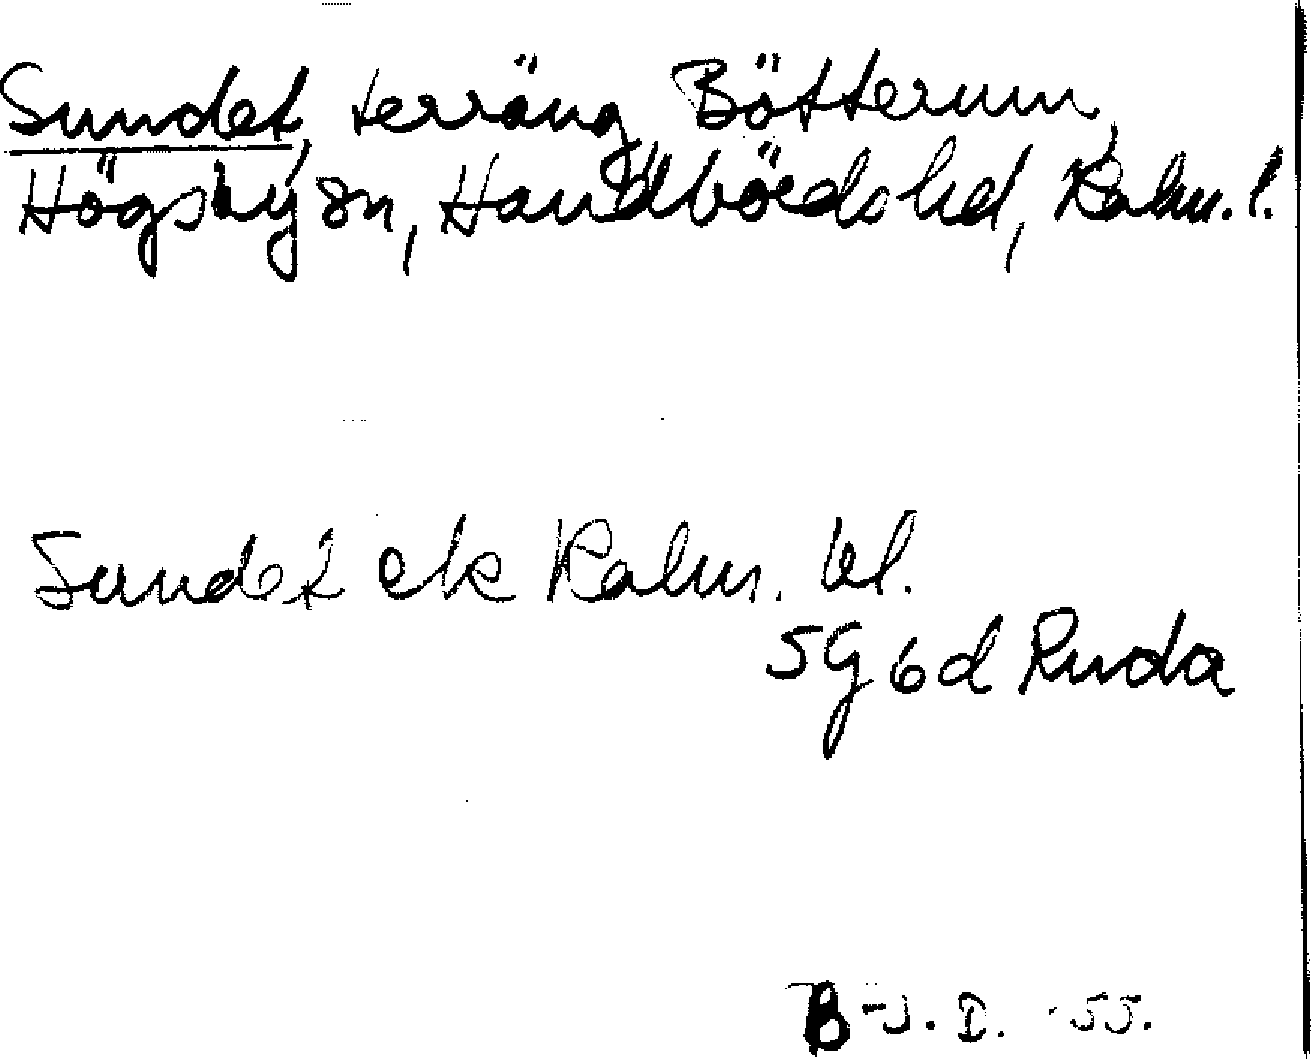 Sundet, terräng Bötterum,
Högsby sn, Handbörds hd, Kalm. l.
Sundet ek Kalm. bl.
5G6d Ruda
B-J. D. -55.